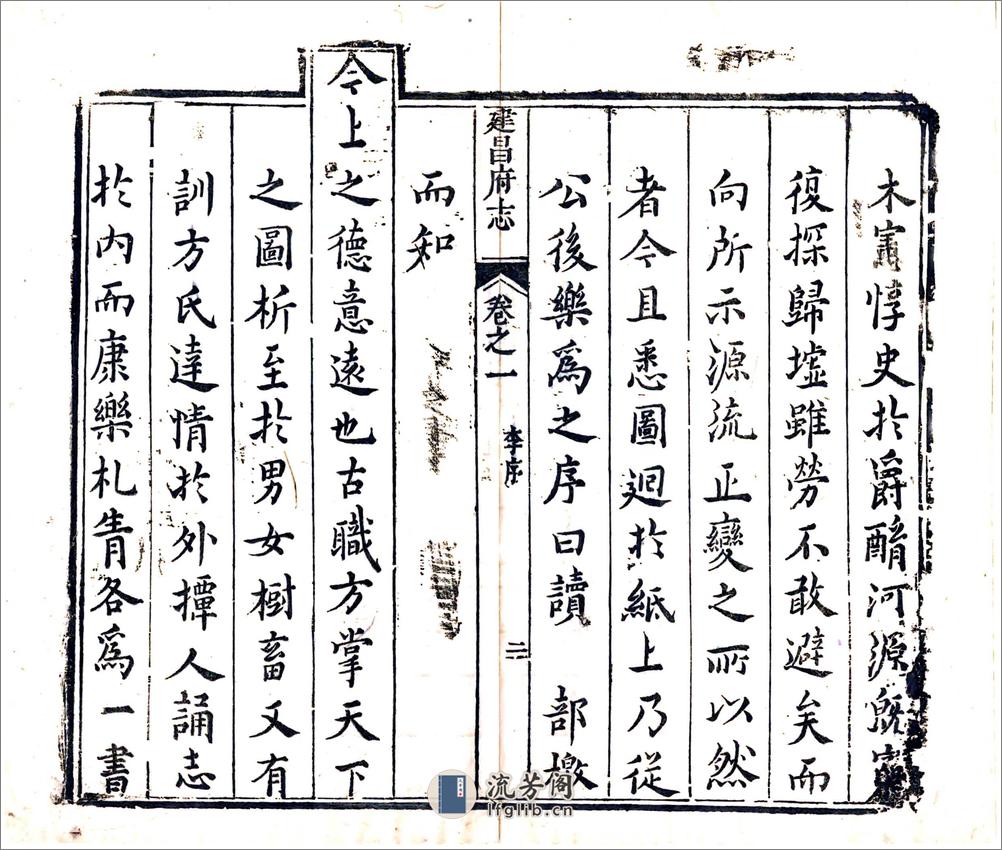 木寗惇史於爵酳河源旣
復探歸墟雖勞不敢避矣而
向所示源流正變之所以然
者今且悉圖迴於紙上乃從
公後樂爲之序曰讀 部檄
而知
建昌府志 卷之一 李序 二
今上之德意遠也古職方掌天下
之圖析至於男女樹畜又有
訓方氏達情於外撢人誦志
於内而康樂札青各爲一書
流芳阁
lfglib.cn